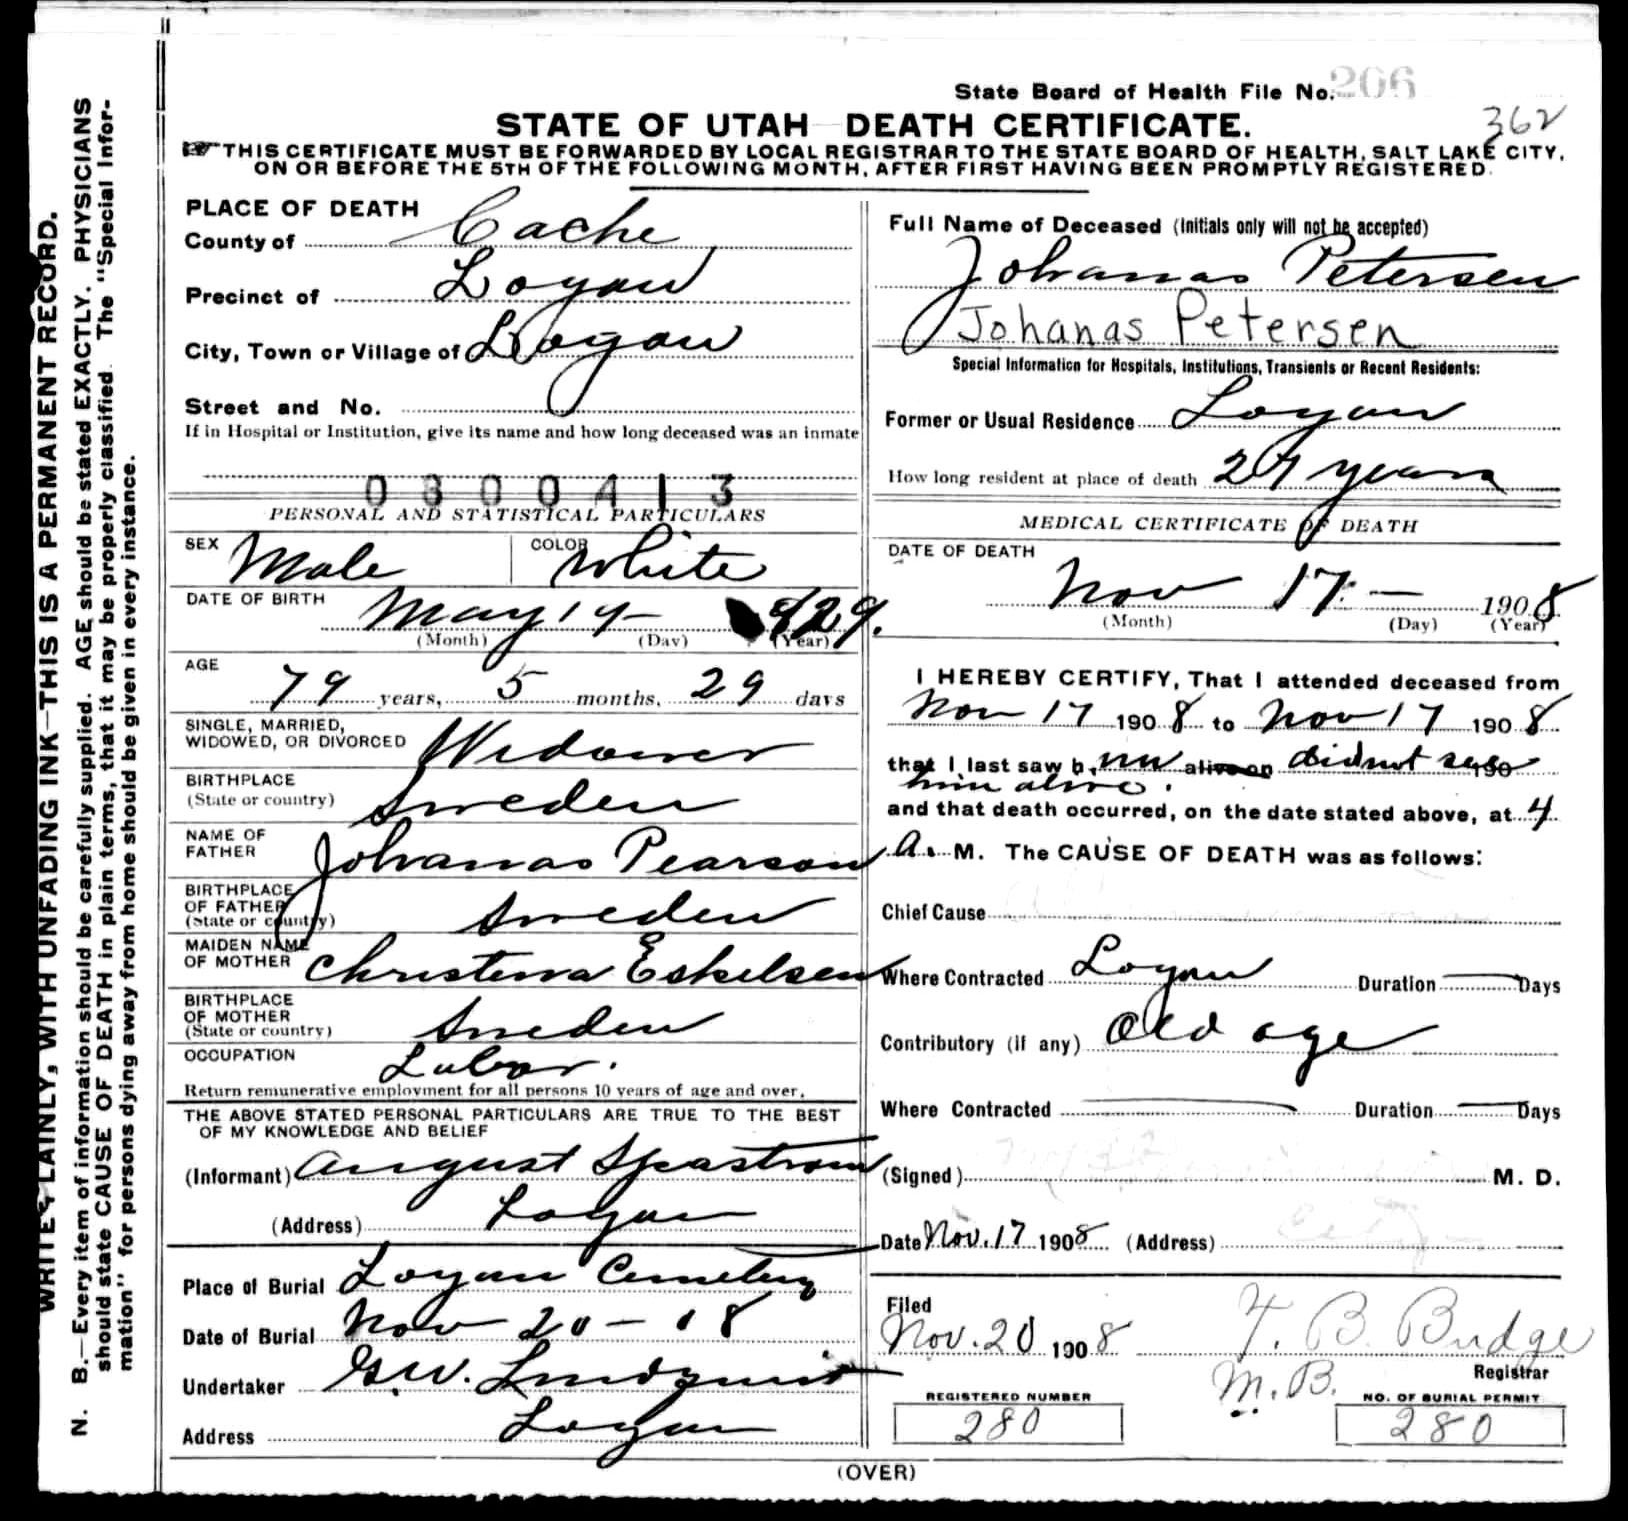 State Board of Health File No. 206
362
STATE OF UTAH DEATH CERTIFICATE.
THIS CERTIFICATE MUST BE FORWARDED BY LOCAL REGISTRAR TO THE STATE BOARD OF HEALTH, SALT LAKE CITY,
ON OR BEFORE THE 5TH OF THE FOLLOWING MONTH, AFTER FIRST HAVING BEEN PROMPTLY REGISTERED.
WRITE PLAINLY, WITH UNFADING INK—THIS IS A PERMANENT RECORD.
N. B.—Every item of information should be carefully supplied. AGE should be stated EXACTLY. PHYSICIANS
should state CAUSE OF DEATH in plain terms, that it may be properly classified. The "Special Infor-
mation" for persons dying away from home should be given in every instance.
PLACE OF DEATH
County of Cache
Precinct of Logan
City, Town or Village of Logan
Street and No.
If in Hospital or Institution, give its name and how long deceased was an inmate
0300413
PERSONAL AND STATISTICAL PARTICULARS
SEX Male COLOR White
DATE OF BIRTH May 19 — 829.
(Month) (Day) (Year)
AGE
79 years, 5 months, 29 days
SINGLE, MARRIED,
WIDOWED, OR DIVORCED Widower
BIRTHPLACE
(State or country) Sweden
NAME OF
FATHER Johanas Pearson
BIRTHPLACE
OF FATHER
(State or country) Sweden
MAIDEN NAME
OF MOTHER Christena Eskelsen
BIRTHPLACE
OF MOTHER
(State or country) Sweden
OCCUPATION Labor.
Return remunerative employment for all persons 10 years of age and over.
THE ABOVE STATED PERSONAL PARTICULARS ARE TRUE TO THE BEST
OF MY KNOWLEDGE AND BELIEF
(Informant) August
(Address) Logan
Place of Burial Logan Cemetery
Date of Burial Nov 20 -
Undertaker G.W. Lindquist
Address Logan
Full Name of Deceased (Initials only will not be accepted)
Johanas Petersen
Johanas Petersen
Special Information for Hospitals, Institutions, Transients or Recent Residents:
Former or Usual Residence Logan
How long resident at place of death years
MEDICAL CERTIFICATE OF DEATH
DATE OF DEATH
Nov 17 — 1908
(Month) (Day) (Year)
I HEREBY CERTIFY, That I attended deceased from
Nov 17 1908 to Nov 17 1908
that I last saw him alive on did not see 190
him alive.
and that death occurred, on the date stated above, at 4
A. M. The CAUSE OF DEATH was as follows:
Chief Cause
Where Contracted Logan Duration — Days
Contributory (if any) Old age
Where Contracted — Duration — Days
(Signed) M. D.
Date Nov. 17 1908 (Address)
Filed
Nov. 20 1908 F. B. Budge
Registrar
M. B.
REGISTERED NUMBER
280
NO. OF BURIAL PERMIT
280
(OVER)